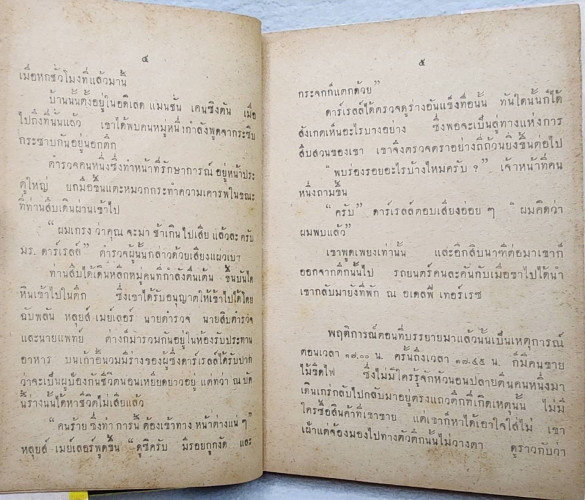 ๔
เมื่อหกชั่วโมงที่แล้วมานี้
บ้านนั้นตั้งอยู่ในอดิเลด แมนชั่น เคนซิงตัน เมื่อ
ไปถึงที่นั้นแล้ว เขาได้พบคนหมู่หนึ่งกำลังพูดจากระซิบ
กระซาบกันอยู่นอกตึก
ตำรวจคนหนึ่งซึ่งทำหน้าที่รักษาการณ์ อยู่หน้าประ
ตูใหญ่ ยกมือขึ้นแตะหมวกกระทำความเคารพในขณะ
ที่ท่านสืบเดินผ่านเข้าไป
“ผมเกรง ว่าคุณ จะมา ช้าเกินไปเสีย แล้วละครับ
มร. ดาร์เรลล์” ตำรวจผู้นั้นกล่าวด้วยเสียงแผ่วเบา
ท่านสืบได้เดินหลีกหมู่คนที่กำลังตื่นเต้น ขึ้นบันได
หินเข้าไปในตึก ซึ่งเขาได้รับอนุญาตให้เข้าไปได้โดย
ฉับพลัน หลุยส์ เมย์เลอร์ นายตำรวจ นายสืบตำรวจ
และนายแพทย์ ต่างก็มารวมกันอยู่ในห้องรับประทาน
อาหาร บนเก้าอี้นวมมีร่างของผู้ซึ่งดาร์เรลล์ได้รับปาก
ว่าจะเป็นผู้ป้องกันชีวิตนอนเหยียดยาวอยู่ แต่ทว่า ณ บัด
นี้ร่างนั้นได้หาชีวิตไม่เสียแล้ว
“คนร้าย ซึ่งทำ การนี้ ต้องเข้าทาง หน้าต่างแน่ ๆ”
หลุยส์ เมย์เลอร์พูดขึ้น “ดูซิครับ มีรอยถูกงัด และ
๕
กระจกก็แตกด้วย”
ดาร์เรลล์ได้ตรวจดูร่างอันแข็งทื่อนั้น ทันใดนั้นก็ได้
สังเกตเห็นอะไรบางอย่าง ซึ่งพอจะเป็นลู่ทางแห่งการ
สืบสวนของเขา เขาจึงตรวจตราอย่างถี่ถ้วนยิ่งขึ้นต่อไป
“พบร่องรอยอะไรบ้างไหมครับ ?” เจ้าหน้าที่คน
หนึ่งถามขึ้น
“ครับ” ดาร์เรลล์ตอบเสียงอ่อย ๆ “ผมคิดว่า
ผมพบแล้ว”
เขาพูดเพียงเท่านั้น และอีกสิบนาทีต่อมาเขาก็
ออกจากตึกนั้นไป รถยนตร์คนละคันกับเมื่อขาไปได้นำ
เขากลับมายังที่พัก ณ อเดลฟี่ เทอร์เรซ
พฤติการณ์ตอนที่บรรยายมาแล้วนั้นเป็นเหตุการณ์
ตอนเวลา ๑๗.๐๐ น. ครั้นถึงเวลา ๑๗.๕๕ น. ก็มีคนขาย
ไม้ขีดไฟ ซึ่งไม่มีใครรู้จักหัวนอนปลายตีนคนหนึ่งมา
เดินเกร่กลับไปกลับมาอยู่ตรงแถวตึกที่เกิดเหตุนั้น ไม่มี
ใครซื้อสินค้าที่เขาขาย แต่เขาก็หาได้เอาใจใส่ไม่ เขา
เฝ้าแต่จ้องมองไปทางตัวตึกนั้นไม่วางตา ดูราวกับว่า